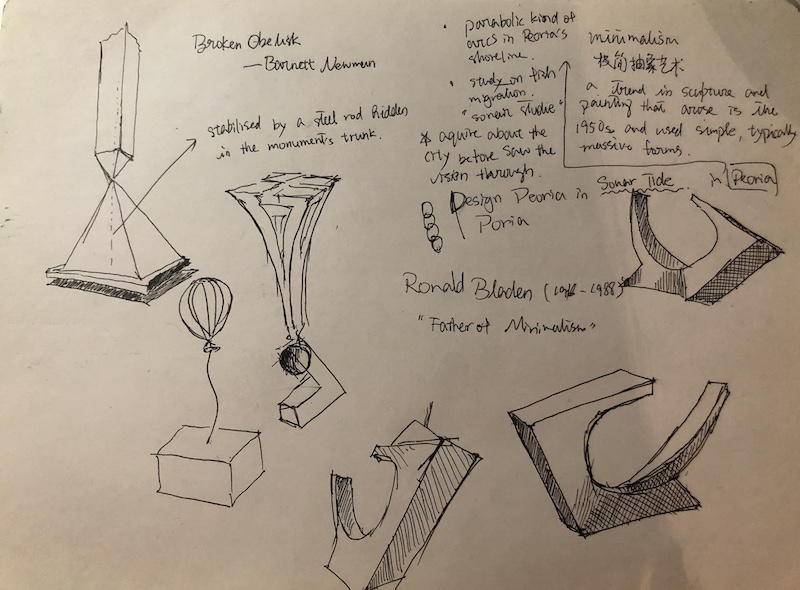 Broken Obelisk
— Barnett Newman
stabilised by a steel rod hidden
in the monument's trunk.
• parabolic kind of
arcs in Peoria's
shoreline.
• study on fish
migration.
"sonar studie"
* aquire about the
city before saw the
vision through.
minimalism
极简抽象艺术
a trend in sculpture and
painting that arose is the
1950s and used simple, typically
massive forms.
Sonar Tide. in Peoria
Design Peoria in
Poria
Ronald Bladen ( - 1988)
"Father of Minimalism"